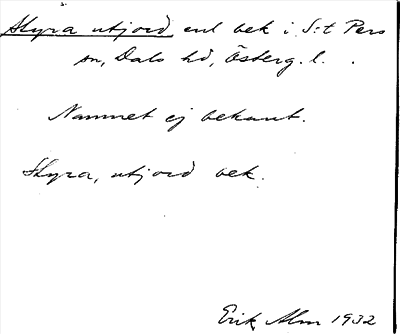 Skyra utjord enl bek i S:t Pers
sn, Dals hd, Österg. l.
Namnet ej bekant.
Skyra, utjord bek.
Erik Alm 1932